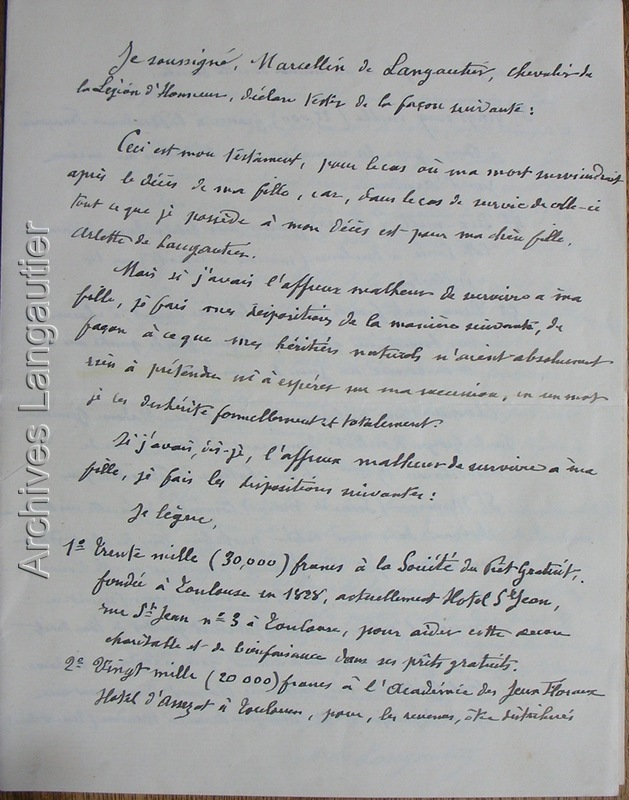 Je soussigné, Marcellin de Langautier, chevalier de
la Légion d'Honneur, déclare tester de la façon suivante :
Ceci est mon testament, pour le cas où ma mort surviendrait
après le décès de ma fille, car, dans le cas de survie de celle-ci
tout ce que je possède à mon décès est pour ma chère fille,
Arlette de Langautier.
Mais si j'avais l'affreux malheur de survivre à ma
fille, je fais mes dispositions de la manière suivante, de
façon à ce que mes héritiers naturels n'aient absolument
rien à prétendre ni à espérer sur ma succession, en un mot
je les deshérite formellement et totalement.
Si j'avais, dis-je, l'affreux malheur de survivre à ma
fille, je fais les dispositions suivantes :
Je lègue,
1º Trente mille (30,000) francs à la Société du Prêt Gratuit,
fondée à Toulouse en 1828, actuellement Hotel St Jean,
rue St Jean nº 3 à Toulouse, pour aider cette œuvre
charitable et de bienfaisance dans ses prêts gratuits.
2º Vingt mille (20 000) francs à l'Académie des Jeux Floraux
Hotel d'Assezat à Toulouse, pour, les revenus, être distribués
Archives Langautier